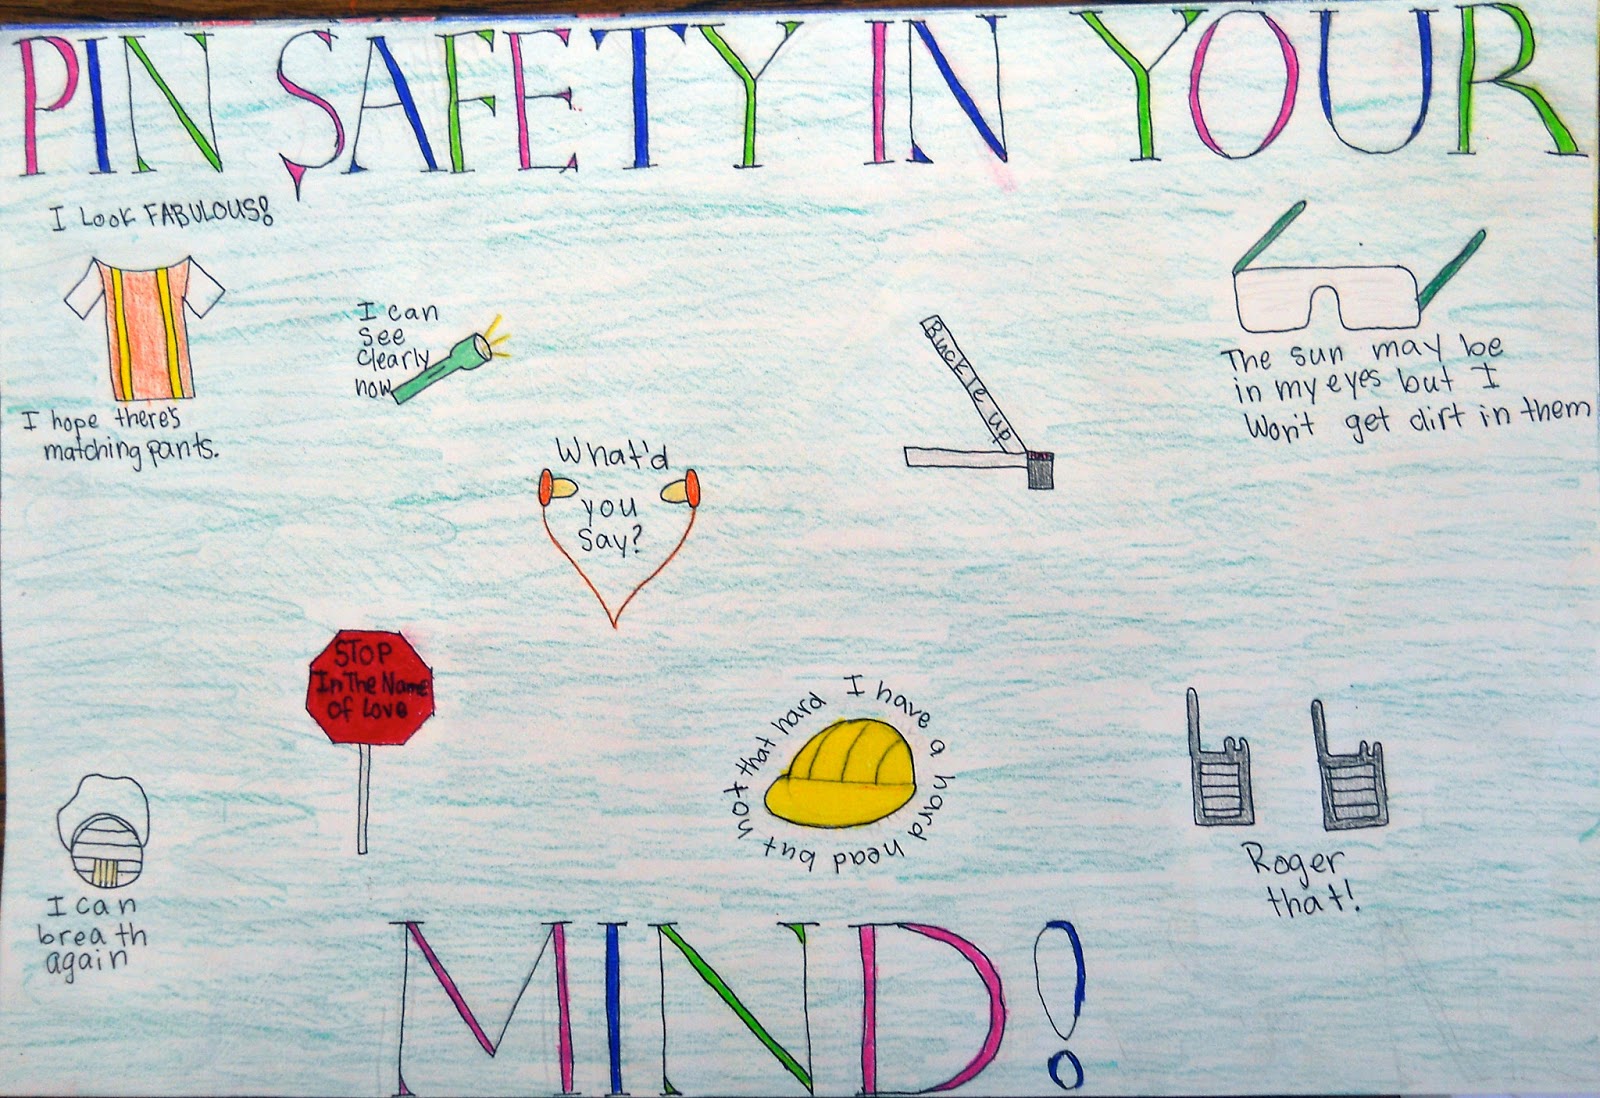 PIN SAFETY IN YOUR
I Look FABULOUS!
I hope there's
matching pants.
I can
see
clearly
now
What'd
you
say?
Buckle up
The sun may be
in my eyes but I
Won't get dirt in them
STOP
In The Name
of Love
I have a hard head but not that hard
Roger
that!
I can
breath
again
MIND!